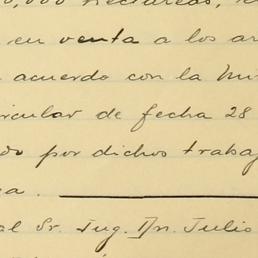 0,000 hectáreas, e
en venta a los ar
acuerdo con la Mi
circular de fecha 28
do por dichos trabaj
a.
al Sr. Ing. Dn. Julio